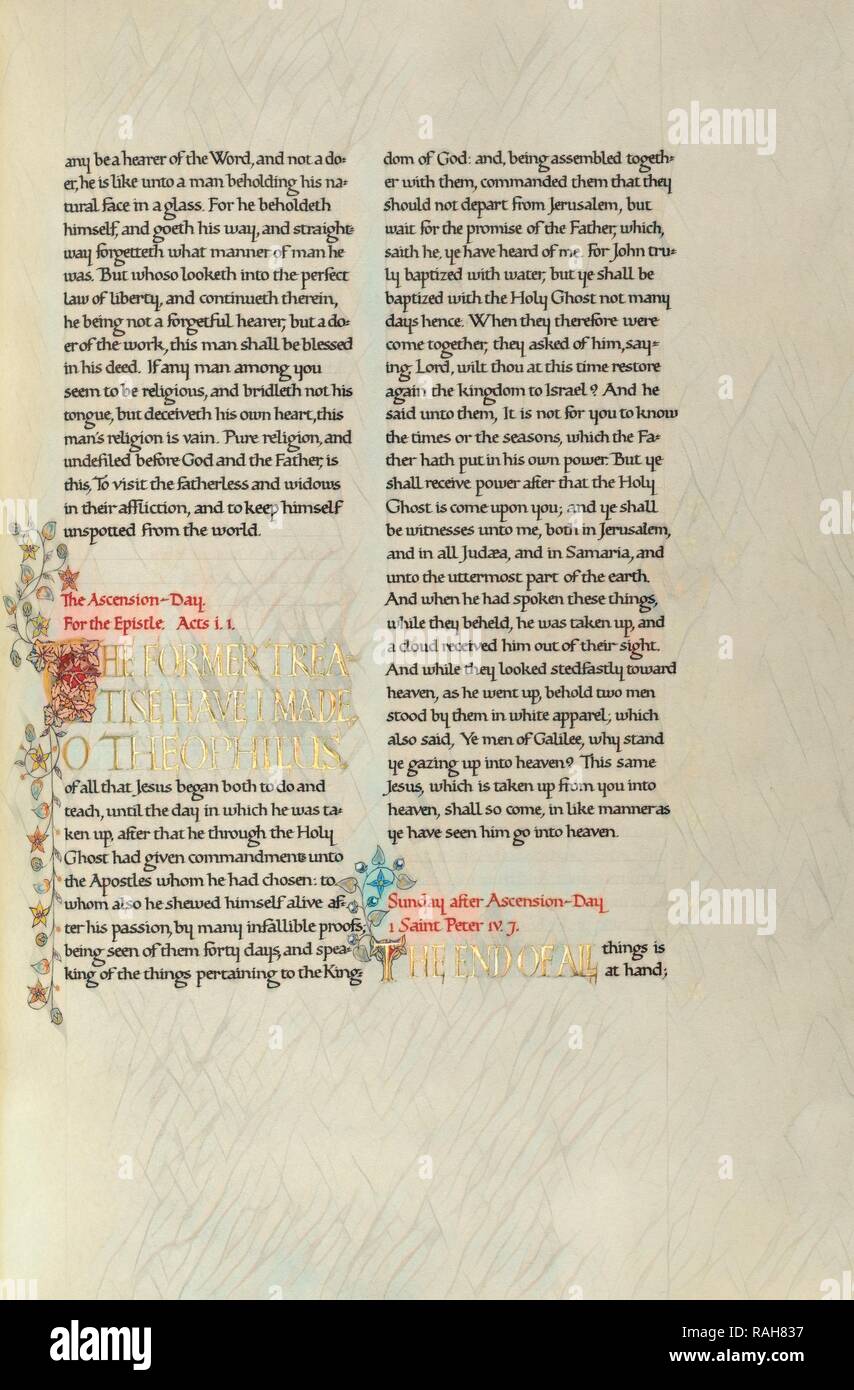 any be a hearer of the Word, and not a do=
er, he is like unto a man beholding his na=
tural face in a glass. For he beholdeth
himself, and goeth his way, and straight=
way forgetteth what manner of man he
was. But whoso looketh into the perfect
law of liberty, and continueth therein,
he being not a forgetful hearer, but a do=
er of the work, this man shall be blessed
in his deed. If any man among you
seem to be religious, and bridleth not his
tongue, but deceiveth his own heart, this
man's religion is vain. Pure religion, and
undefiled before God and the Father, is
this, To visit the fatherless and widows
in their affliction, and to keep himself
unspotted from the world.
The Ascension-Day.
For the Epistle. Acts i. 1.
THE FORMER TREA-
TISE HAVE I MADE,
O THEOPHILUS,
of all that Jesus began both to do and
teach, until the day in which he was ta=
ken up, after that he through the Holy
Ghost had given commandments unto
the Apostles whom he had chosen: to
whom also he shewed himself alive af=
ter his passion, by many infallible proofs,
being seen of them forty days, and spea=
king of the things pertaining to the King=
dom of God: and, being assembled togeth=
er with them, commanded them that they
should not depart from Jerusalem, but
wait for the promise of the Father, which,
saith he, ye have heard of me. For John tru=
ly baptized with water; but ye shall be
baptized with the Holy Ghost not many
days hence. When they therefore were
come together, they asked of him, say=
ing; Lord, wilt thou at this time restore
again the kingdom to Israel? And he
said unto them, It is not for you to know
the times or the seasons, which the Fa=
ther hath put in his own power. But ye
shall receive power after that the Holy
Ghost is come upon you; and ye shall
be witnesses unto me, both in Jerusalem,
and in all Judæa, and in Samaria, and
unto the uttermost part of the earth.
And when he had spoken these things,
while they beheld, he was taken up, and
a cloud received him out of their sight.
And while they looked stedfastly toward
heaven, as he went up, behold two men
stood by them in white apparel; which
also said, Ye men of Galilee, why stand
ye gazing up into heaven? This same
Jesus, which is taken up from you into
heaven, shall so come, in like manner as
ye have seen him go into heaven.
Sunday after Ascension-Day
1 Saint Peter iv. 7.
THE END OF ALL things is
at hand;
alamy
alamy
alamy
Image ID: RAH837
www.alamy.com